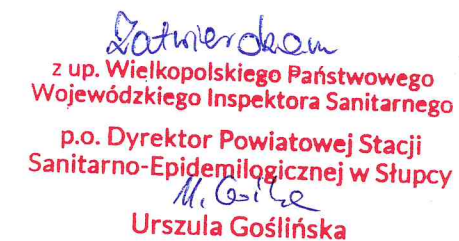 Zatwierdzam
z up. Wielkopolskiego Państwowego
Wojewódzkiego Inspektora Sanitarnego
p.o. Dyrektor Powiatowej Stacji
Sanitarno-Epidemilogicznej w Słupcy
Urszula Goślińska